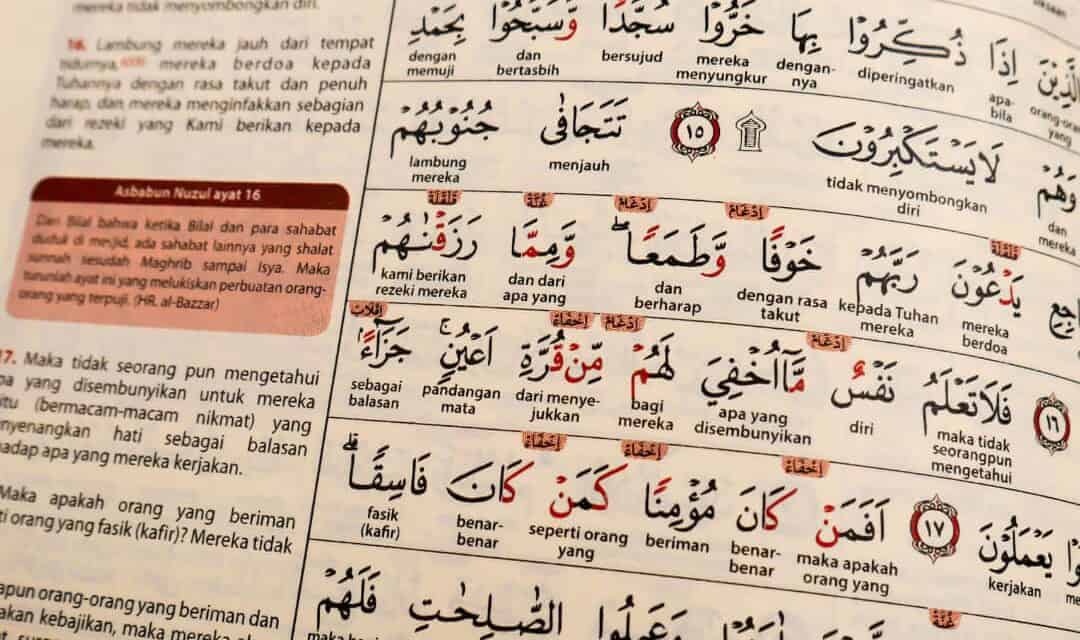 mereka tidak menyombongkan diri.
16. Lambung mereka jauh dari tempat
tidurnya, mereka berdoa kepada
Tuhannya dengan rasa takut dan penuh
harap, dan mereka menginfakkan sebagian
dari rezeki yang Kami berikan kepada
mereka.
Asbabun Nuzul ayat 16
Dari Bilal bahwa ketika Bilal dan para sahabat
duduk di mesjid, ada sahabat lainnya yang shalat
sunnah sesudah Maghrib sampai Isya. Maka
turunlah ayat ini yang melukiskan perbuatan orang-
orang yang terpuji. (HR. al-Bazzar)
17. Maka tidak seorang pun mengetahui
apa yang disembunyikan untuk mereka
itu (bermacam-macam nikmat) yang
menyenangkan hati sebagai balasan
terhadap apa yang mereka kerjakan.
Maka apakah orang yang beriman
orang yang fasik (kafir)? Mereka tidak
orang-orang yang beriman dan
kebajikan, maka mereka
الَّذِيْنَ اِذَا ذُكِّرُوْا بِهَا خَرُّوْا سُجَّدًا وَّسَبَّحُوْا بِحَمْدِ
orang-orang yang apa-bila diperingatkan dengan-nya mereka menyungkur bersujud dan bertasbih dengan memuji
وَهُمْ لَا يَسْتَكْبِرُوْنَ ۩ ١٥ تَتَجَافٰى جُنُوْبُهُمْ
dan mereka tidak menyombongkan diri menjauh lambung mereka
قلقلة إدغام إدغام غنّة قلقلة
يَدْعُوْنَ رَبَّهُمْ خَوْفًا وَّطَمَعًا وَّمِمَّا رَزَقْنٰهُمْ
mereka berdoa kepada Tuhan mereka dengan rasa takut dan berharap dan dari apa yang kami berikan rezeki mereka
إدغام إدغام إخفاء إقلاب
١٦ فَلَا تَعْلَمُ نَفْسٌ مَّآ اُخْفِيَ لَهُمْ مِّنْ قُرَّةِ اَعْيُنٍ جَزَاۤءً
maka tidak seorangpun mengetahui diri apa yang disembunyikan bagi mereka dari menye-jukkan pandangan mata sebagai balasan
إخفاء إخفاء إخفاء
يَعْمَلُوْنَ ١٧ اَفَمَنْ كَانَ مُؤْمِنًا كَمَنْ كَانَ فَاسِقًا
kerjakan maka apakah orang yang benar-benar beriman seperti orang yang benar-benar fasik (kafir)
غنّة
وَعَمِلُوا الصّٰلِحٰتِ فَلَهُمْ